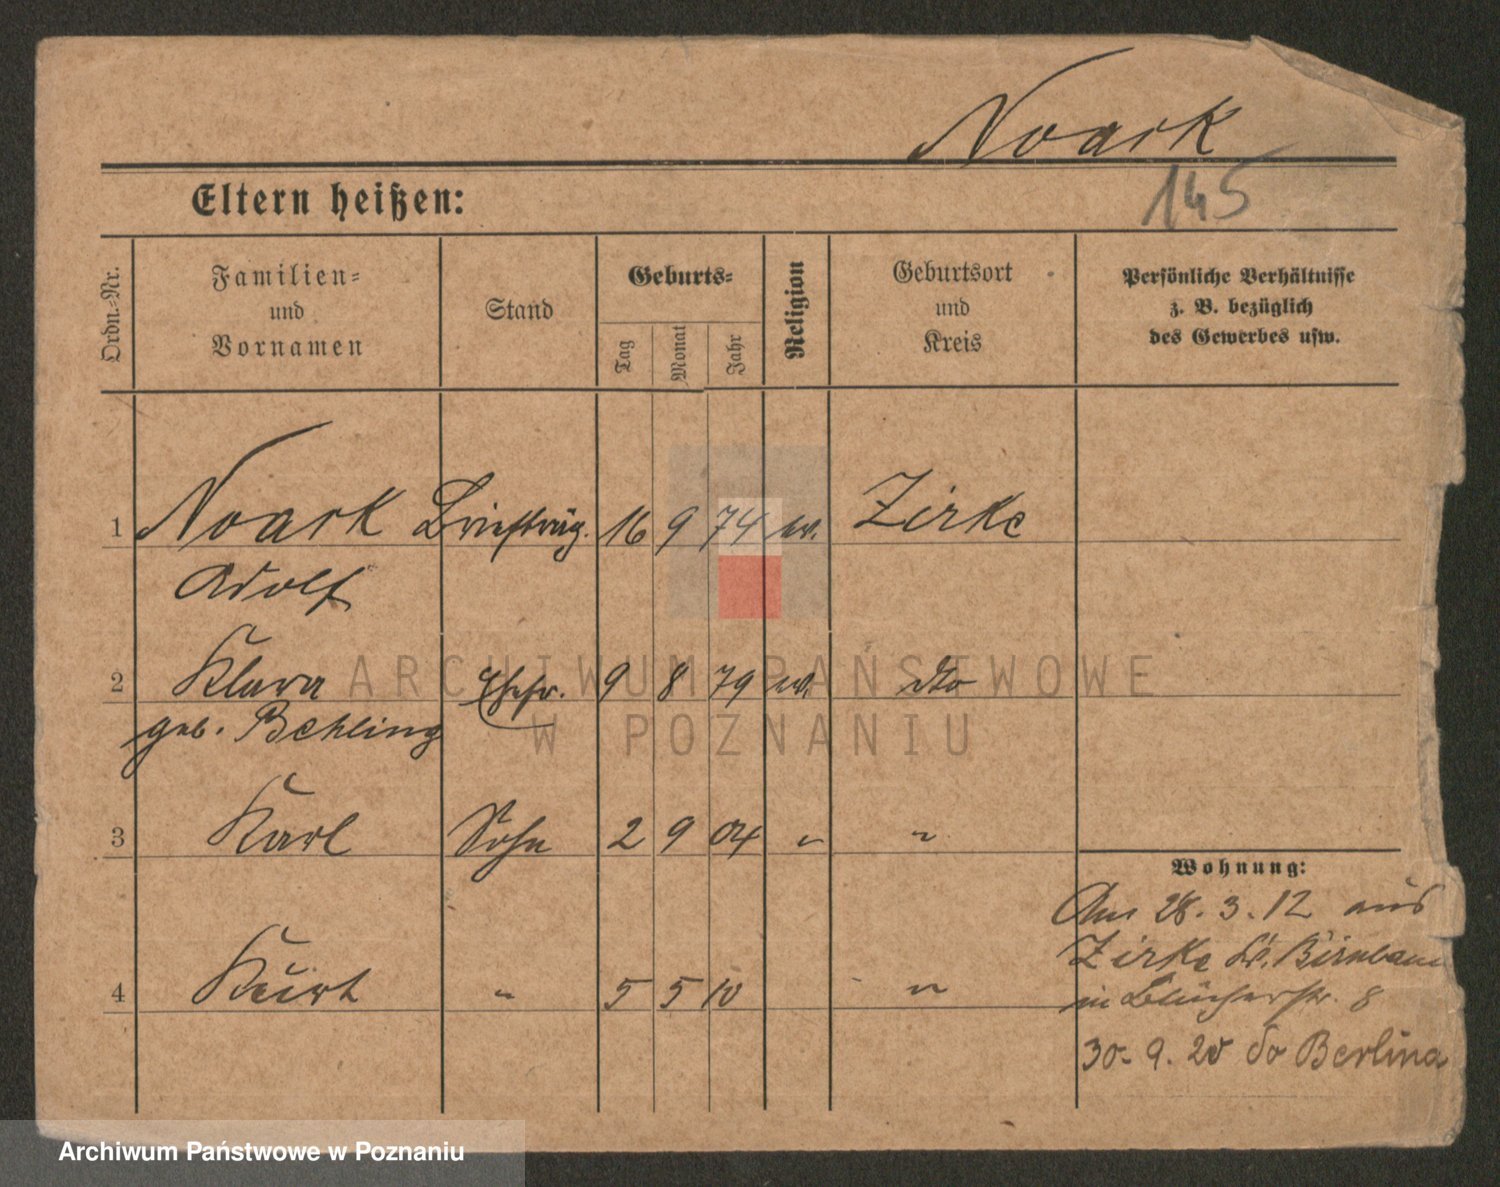 Noack
145
Eltern heißen:
Ordn.-Nr.
Familien-
und
Vornamen
Stand
Geburts-
Tag
Monat
Jahr
Religion
Geburtsort
und
Kreis
Persönliche Verhältnisse
z. B. bezüglich
des Gewerbes usw.
1 Noack Briefträg. 16 9 74 ev. Zirke
Adolf
2 Klara Ehefr. 9 8 79 ev. dto
geb. Behling
3 Karl Sohn 2 9 04 " "
Wohnung:
Am 28.3.12 aus
Zirke Kr. Birnbaum
in Blücherstr. 8
4 Kurt " 5 5 10 "
30.9.20 do Berlina
ARCHIWUM PAŃSTWOWE
W POZNANIU
Archiwum Państwowe w Poznaniu